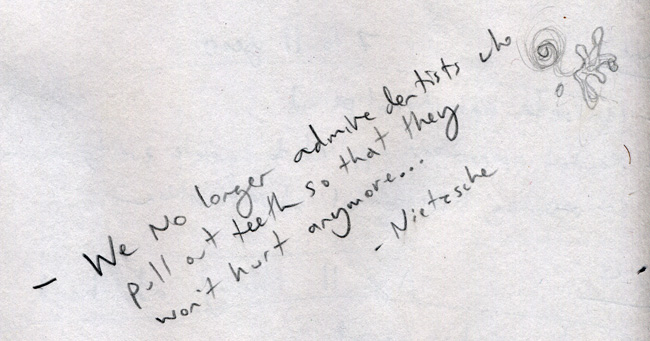 - We No longer admire dentists who
pull out teeth so that they
won't hurt anymore...
- Nietzsche